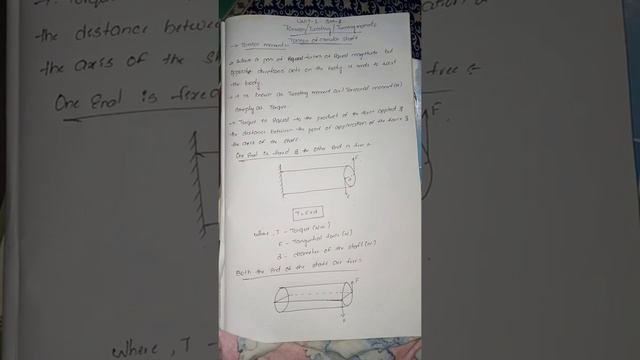 UNIT-1 SOM-II
Torsion/Twisting/Turning moments
Torsion of circular shaft
→ Torsion moment:-
→ When a pair of Equal forces of Equal magnitude but
opposite directions acts on the body it tends to twist
the body.
→ It is known as Twisting moment (or) Torsional moment (or)
simply as Torque.
→ Torque is Equal to the product of the force applied &
the distance between the point of application of the force &
the axis of the shaft
One End is fixed & the other End is free :-
F
F
T = F×d
where, T - Torque (N-m)
F - Tangential force (N)
d - diameter of the shaft (m)
Both the End of the shaft are free:-
F
the distance betwee
the axis of the s
One End is fixed
free :-
F
where, T -